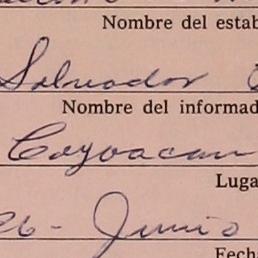 Nombre del estab
Salvador
Nombre del informad
Coyoacan
Luga
26- Junio
Fech